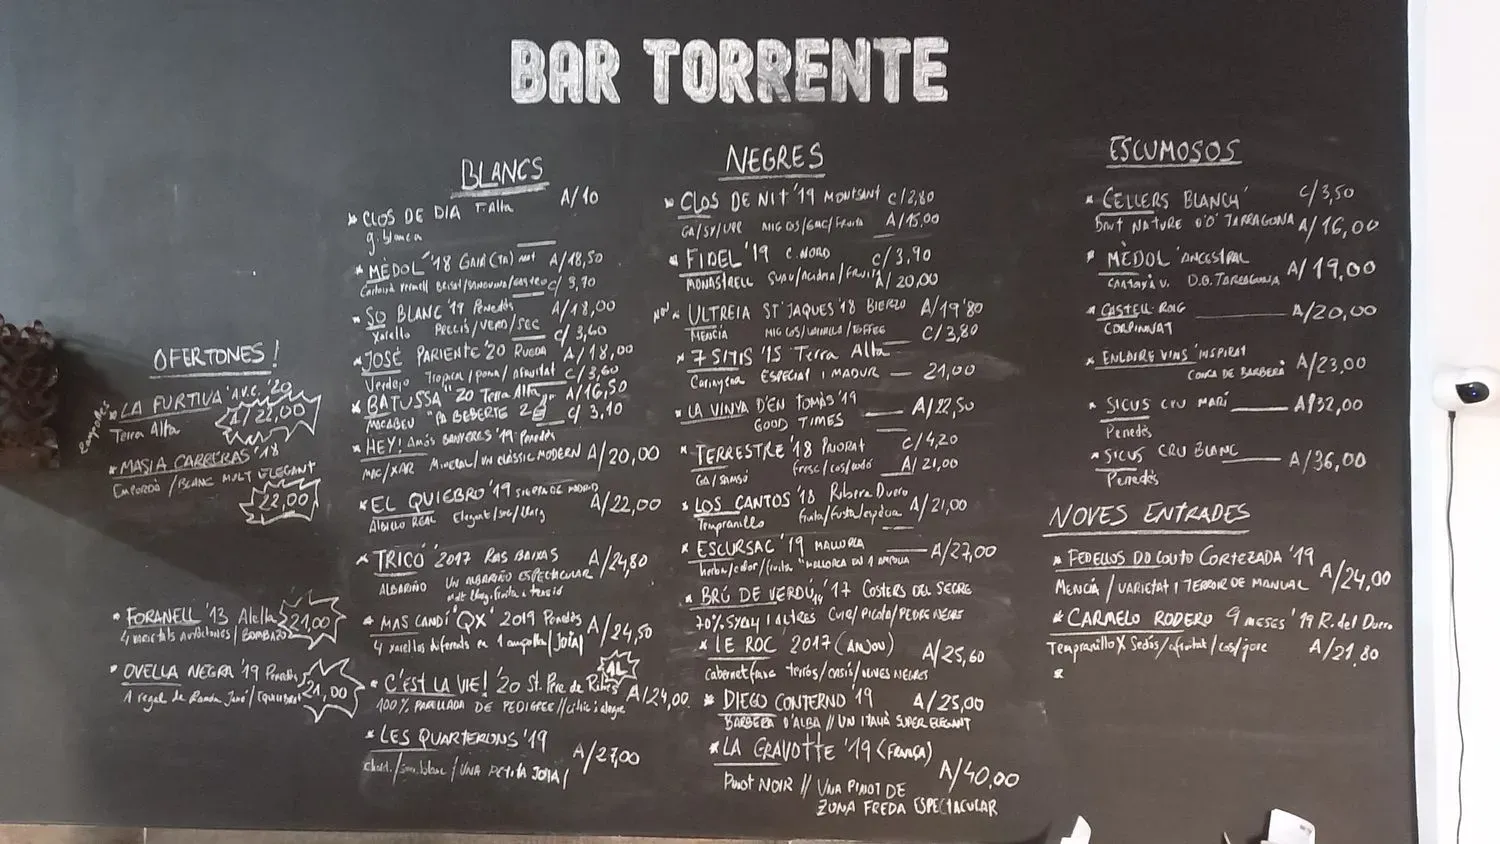 BAR TORRENTE
OFERTONES!
* LA FURTIVA 'A.V.C.' '20
A/22,00
Terra Alta
* MASIA CARRERAS '18
EMPORDÀ / BLANC MOLT ELEGANT
22,00
* FORANELL '13 Alella
21,00
4 varietats autòctones / BOMBAZO
* OVELLA NEGRA '19 Penedès
21,00
1 regal de Ramón Jané /
BLANCS
* CLOS DE DIA T. Alta A/10
g. blanca
* MÈDOL '18 GAIÀ (TA) A/18,50
Cartoixà vermell BRISAT/SANGUINA/GASTRO C/ 3,70
* SO BLANC '19 Penedès A/18,00
Xarello PRÉCIS/VERD/SEC C/ 3,60
* JOSÉ PARIENTE '20 RUEDA A/18,00
Verdejo Tropical/poma/afruitat C/3,60
* BATUSSA '20 Terra Alta A/16,50
MACABEU "PA BEBERTE 2 C/ 3,10
* HEY! AMÓS BANYERES '19 Penedès
MAC/XAR MINERAL/UN CLÀSSIC MODERN A/20,00
* EL QUIEBRO '19 SIERRA DE MADRID
ALBILLO REAL Elegant/sec/llarg A/22,00
* TRICÓ 2017 RIAS BAIXAS A/24,80
ALBARIÑO UN ALBARIÑO ESPECTACULAR
Molt llarg, fruita i tensió
* MAS CANDÍ 'QX' 2019 Penedès A/24,50
4 xarel·los diferents en 1 ampolla / JOIA!
1L
* C'EST LA VIE! '20 St. Pere de Ribes A/24,00
100% PARELLADA DE PEDIGREE // cítric i alegre
* LES QUARTERONS '19 A/27,00
chard./sau. blanc / UNA PETITA JOIA!
NEGRES
* CLOS DE NIT '19 MONTSANT C/2,80
GA/SY/ULL MIG COS/ /fruita A/15,00
* FIDEL '19 C. NORD C/3.90
MONASTRELL SUAU/ACIDESA/FRUITA A/20,00
Nou! * ULTREIA ST JAQUES '18 BIERZO A/19'80
MENCIA MIG COS/VAINILLA/TOFFEE C/3,80
* 7 SITIS '15 Terra Alta
Carinyena ESPECIAT I MADUR — 21,00
* LA VINYA D'EN TOMÀS '19 — A/22,50
GOOD TIMES
* TERRESTRE '18 PRIORAT C/4,20
GA/SAMSÓ fresc/cos/rodó A/21,00
* LOS CANTOS '18 Ribera Duero
Tempranillo fruita/fusta/espècia A/21,00
* ESCURSAC '19 MALLORCA — A/27,00
herba/color/fruita "MALLORCA EN 1 AMPOLLA
* BRÚ DE VERDÚ 14 '17 COSTERS DEL SEGRE
70% SYAH I ALTRES Cuir/Picota/PEDRE NEGRE
* LE ROC 2017 (ANJOU) A/25,60
Cabernet franc terrós/cassís/OLIVES NEGRES
* DIEGO CONTERNO '19 A/25,00
BARBERA D'ALBA // UN ITALIÀ SUPER ELEGANT
* LA GRAVOTTE '19 (FRANÇA) A/40,00
PINOT NOIR // UNA PINOT DE
ZONA FREDA ESPECTACULAR
ESCUMOSOS
* CELLERS BLANCH C/3,50
BRUT NATURE D'O' TARRAGONA A/16,00
* MÈDOL 'ANCESTRAL A/19,00
CARTOIXÀ V. D.O. TARRAGONA
* CASTELL-ROIG — A/20,00
CORPINNAT
* ENLAIRE VINS 'INSPIRAT A/23,00
CONCA DE BARBERÀ
* SICUS CRU MARÍ — A/32,00
Penedès
* SICUS CRU BLANC — A/36,00
Penedès
NOVES ENTRADES
* FEDELLOS DO COUTO CORTEZADA '19
MENCIA / VARIETAT I TERROIR DE MANUAL A/24,00
* CARMELO RODERO 9 MESES '19 R. del Duero
Tempranillo X Sedós/afruitat/cos/jove A/21,80
*